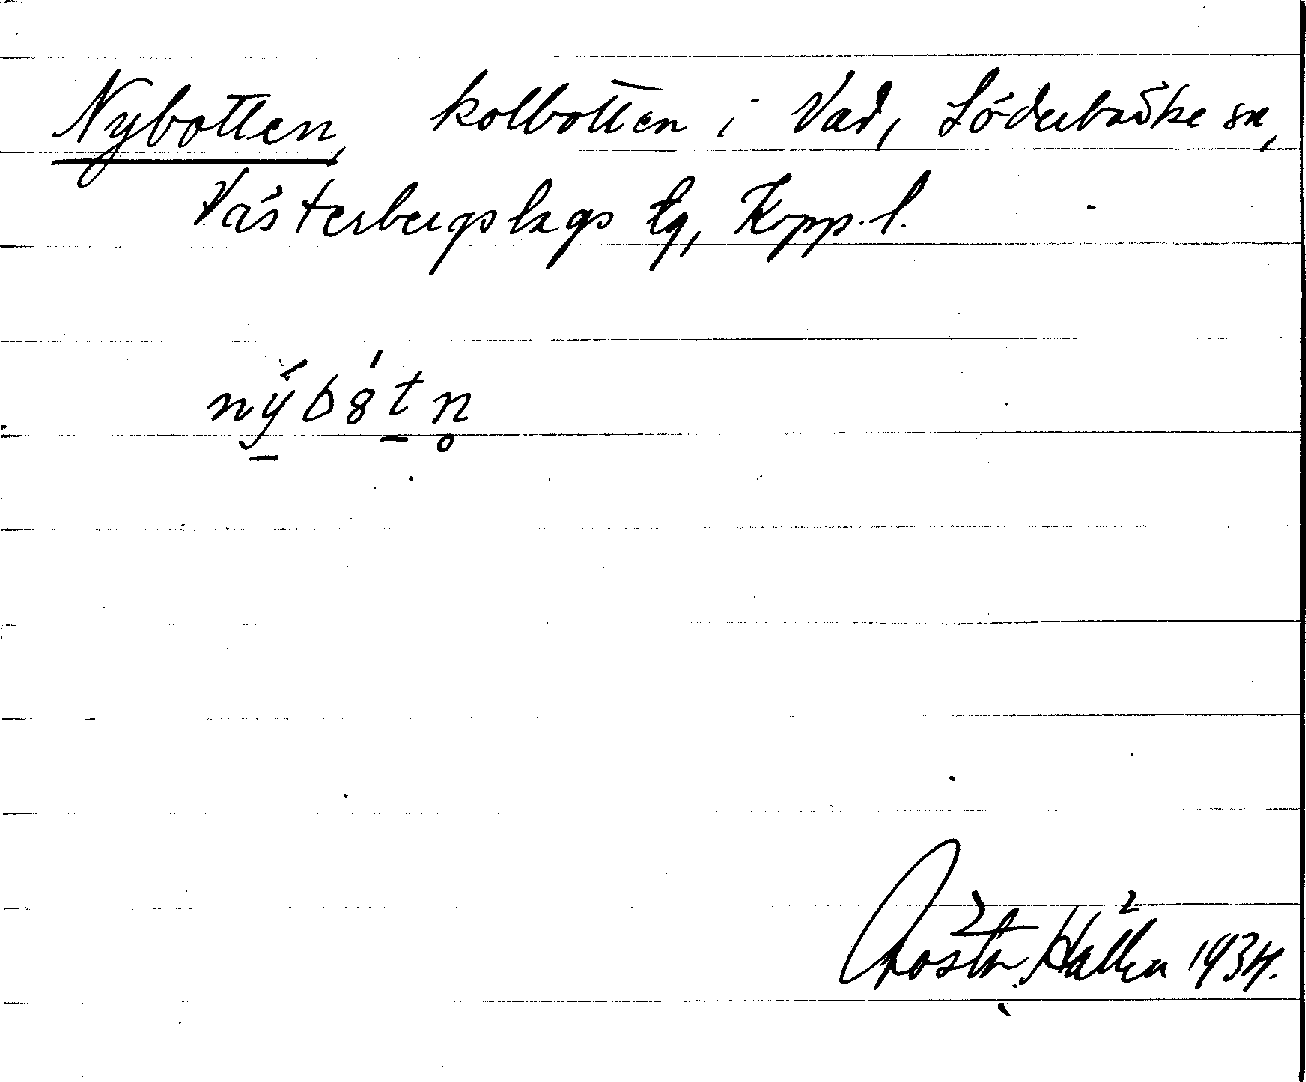 Nybotten, kolbotten i Vad, Söderbärke sn,
Västerbergslags tg, Kopp. l.
nýb8́tn̥
Gösta Hallen 1934.